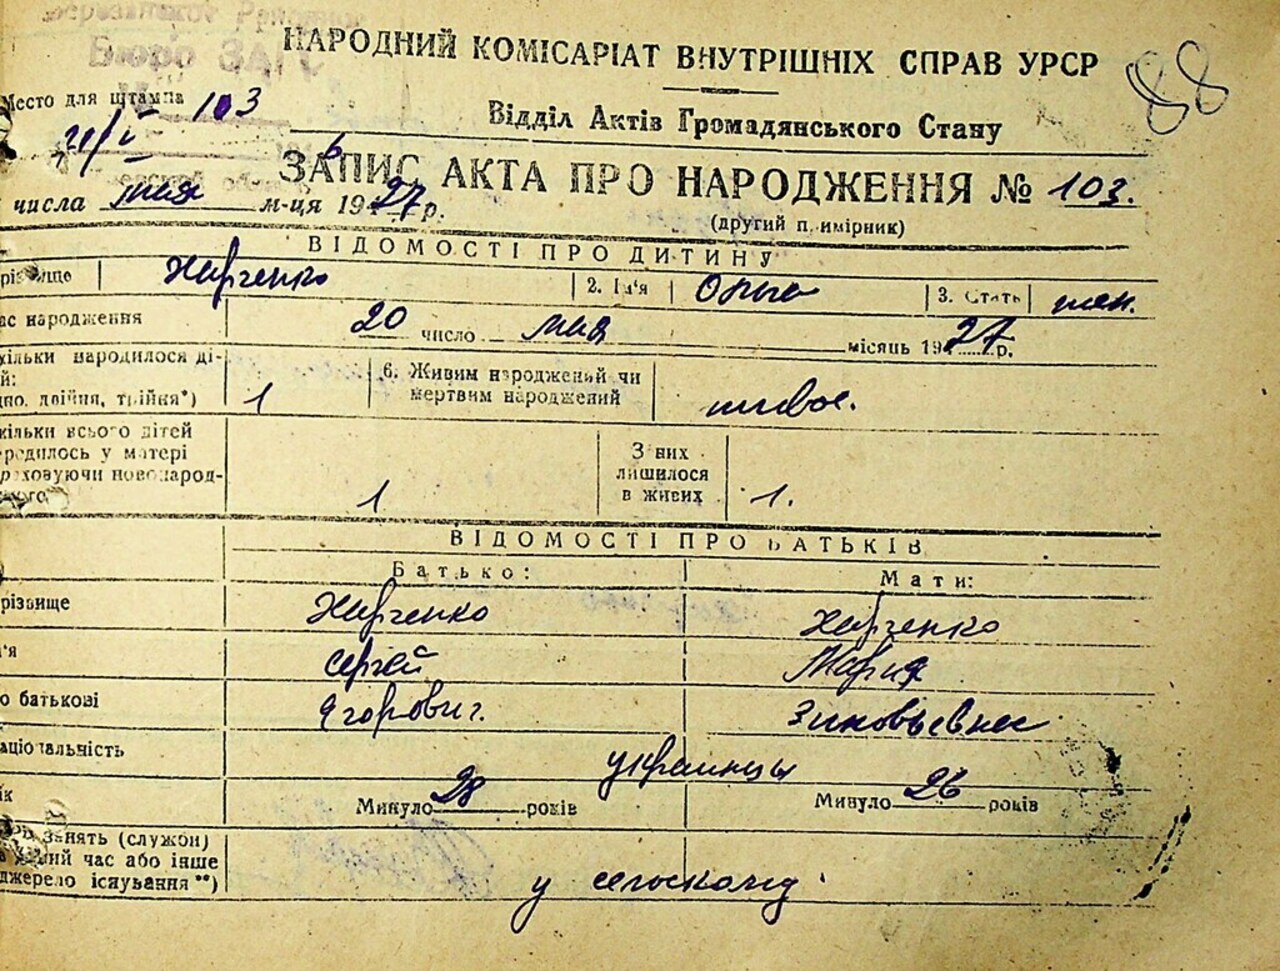 Бюро ЗАГС
НАРОДНИЙ КОМІСАРІАТ ВНУТРІШНІХ СПРАВ УРСР
88
Место для штампа 103
Відділ Актів Громадянського Стану
ЗАПИС АКТА ПРО НАРОДЖЕННЯ № 103.
числа мая м-ця 1927 р.
(другий примірник)
ВІДОМОСТІ ПРО ДИТИНУ
різвище Харченко 2. Ім'я Ольга 3. Стать жен.
ас народження 20 число мая місяць 1927 р.
кільки народилося ді-
й: 6. Живим народжений чи
дно, двійня, трійня*) 1 мертвим народжений живое.
кільки всього дітей
родилось у матері З них
раховуючи новонарод- лишилося
ького 1 в живих 1.
ВІДОМОСТІ ПРО БАТЬКІВ
Батько: Мати:
різвище Харченко Харченко
'я Сергей Мария
о батькові Ягорович. Зиновьевна
аціональність украинцы
ік Минуло 28 років Минуло 26 років
занять (служби)
який час або інше
джерело існування **) у